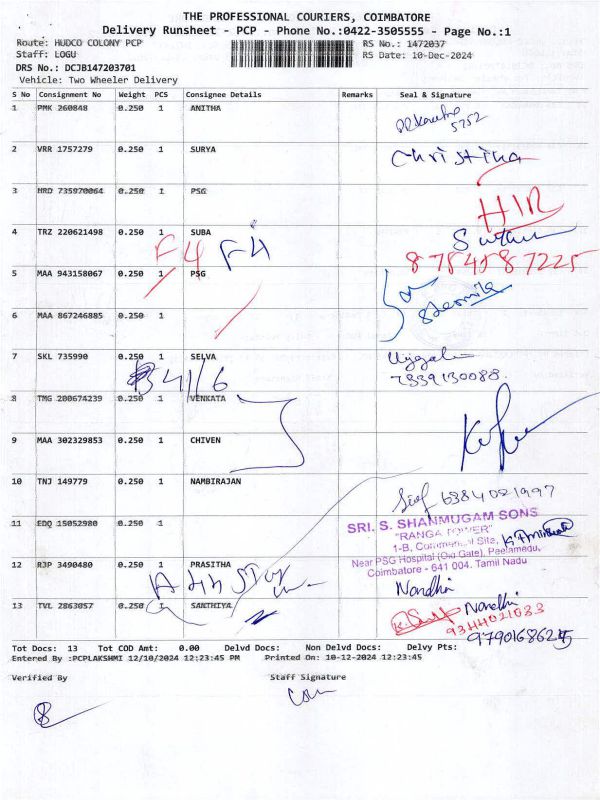 THE PROFESSIONAL COURIERS, COIMBATORE
Delivery Runsheet - PCP - Phone No.:0422-3505555 - Page No.:1
Route: HUDCO COLONY PCP RS No.: 1472037
Staff: LOGU RS Date: 10-Dec-2024
DRS No.: DCJB147203701
Vehicle: Two Wheeler Delivery
S No Consignment No Weight PCS Consignee Details Remarks Seal & Signature
1 PMK 260848 0.250 1 ANITHA
5752
2 VRR 1757279 0.250 1 SURYA Christina
3 HRD 735970064 0.250 1 PSG
HIR
4 TRZ 220621498 0.250 1 SUBA
F4 F4 8754587225
5 MAA 943158067 0.250 1 PSG
Sharmila
6 MAA 867246885 0.250 1
7 SKL 735990 0.250 1 SELVA
B 41/6 7339130088.
8 TMG 200674239 0.250 1 VENKATA
9 MAA 302329853 0.250 1 CHIVEN
10 TNJ 149779 0.250 1 NAMBIRAJAN
6384021997
SRI. S. SHANMUGAM SONS
11 EDQ 15052980 0.250 1 "RANGA TOWER"
1-B, Commercial Site,
Near PSG Hospital (Opp Gate), Peelamedu,
12 RJP 3490480 0.250 1 PRASITHA Coimbatore - 641 004. Tamil Nadu
Nandhi
13 TVL 2863057 0.250 1 SANTHIYA Nandhi
9344021033
9790168625
Tot Docs: 13 Tot COD Amt: 0.00 Delvd Docs: Non Delvd Docs: Delvy Pts:
Entered By :PCPLAKSHMI 12/10/2024 12:23:45 PM Printed On: 10-12-2024 12:23:45
Verified By Staff Signature